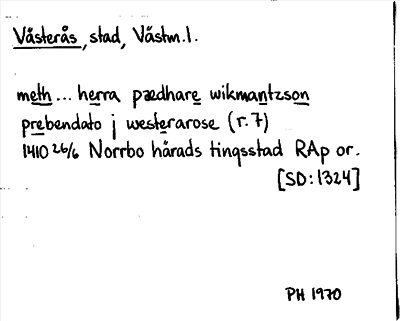 Västerås, stad, Västm.l.
meth... herra pædhare wikmantzson
prebendato j westerarose (r.7)
1410 26/6 Norrbo härads tingsstad RAp or.
[SD:1324]
PH 1970